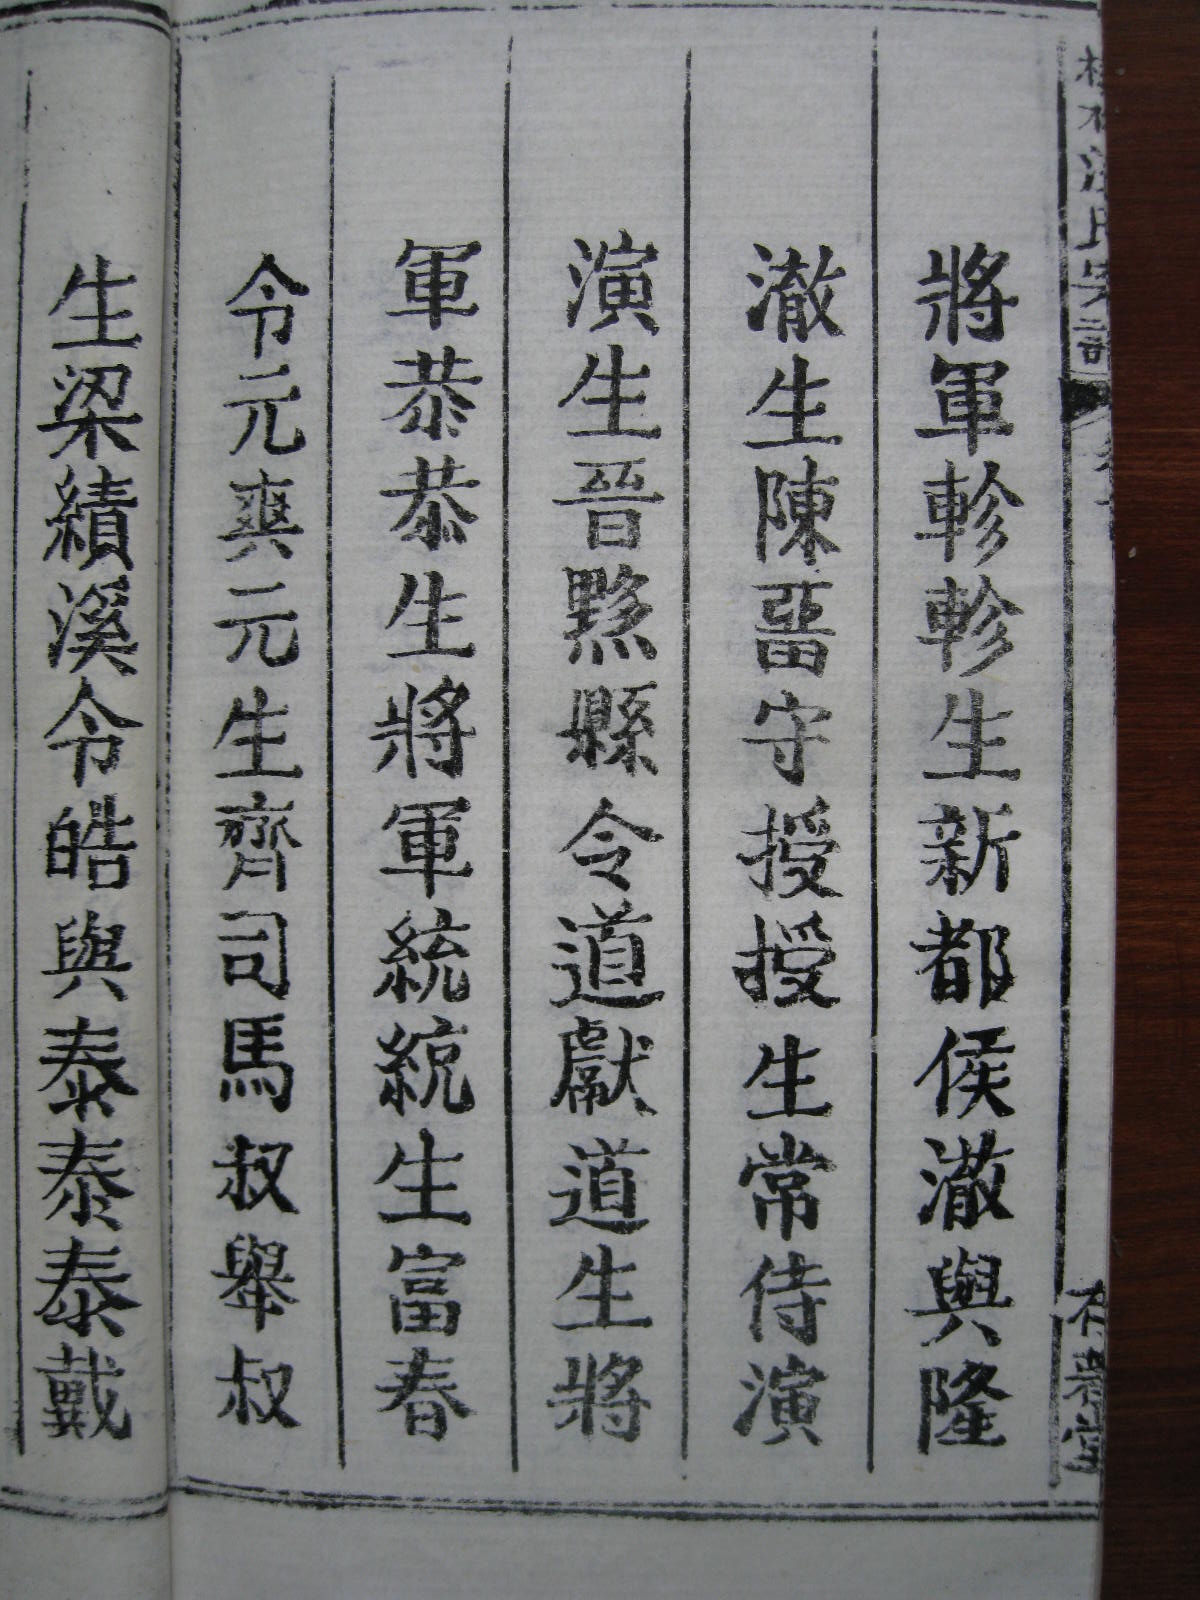 汪氏宗譜
將軍軫軫生新都侯澈與隆
澈生陳畱守授授生常侍演
演生晉黟縣令道獻道生將
軍恭恭生將軍統統生富春
令元爽元生齊司馬叔舉叔
生梁績溪令皓與泰泰泰戴